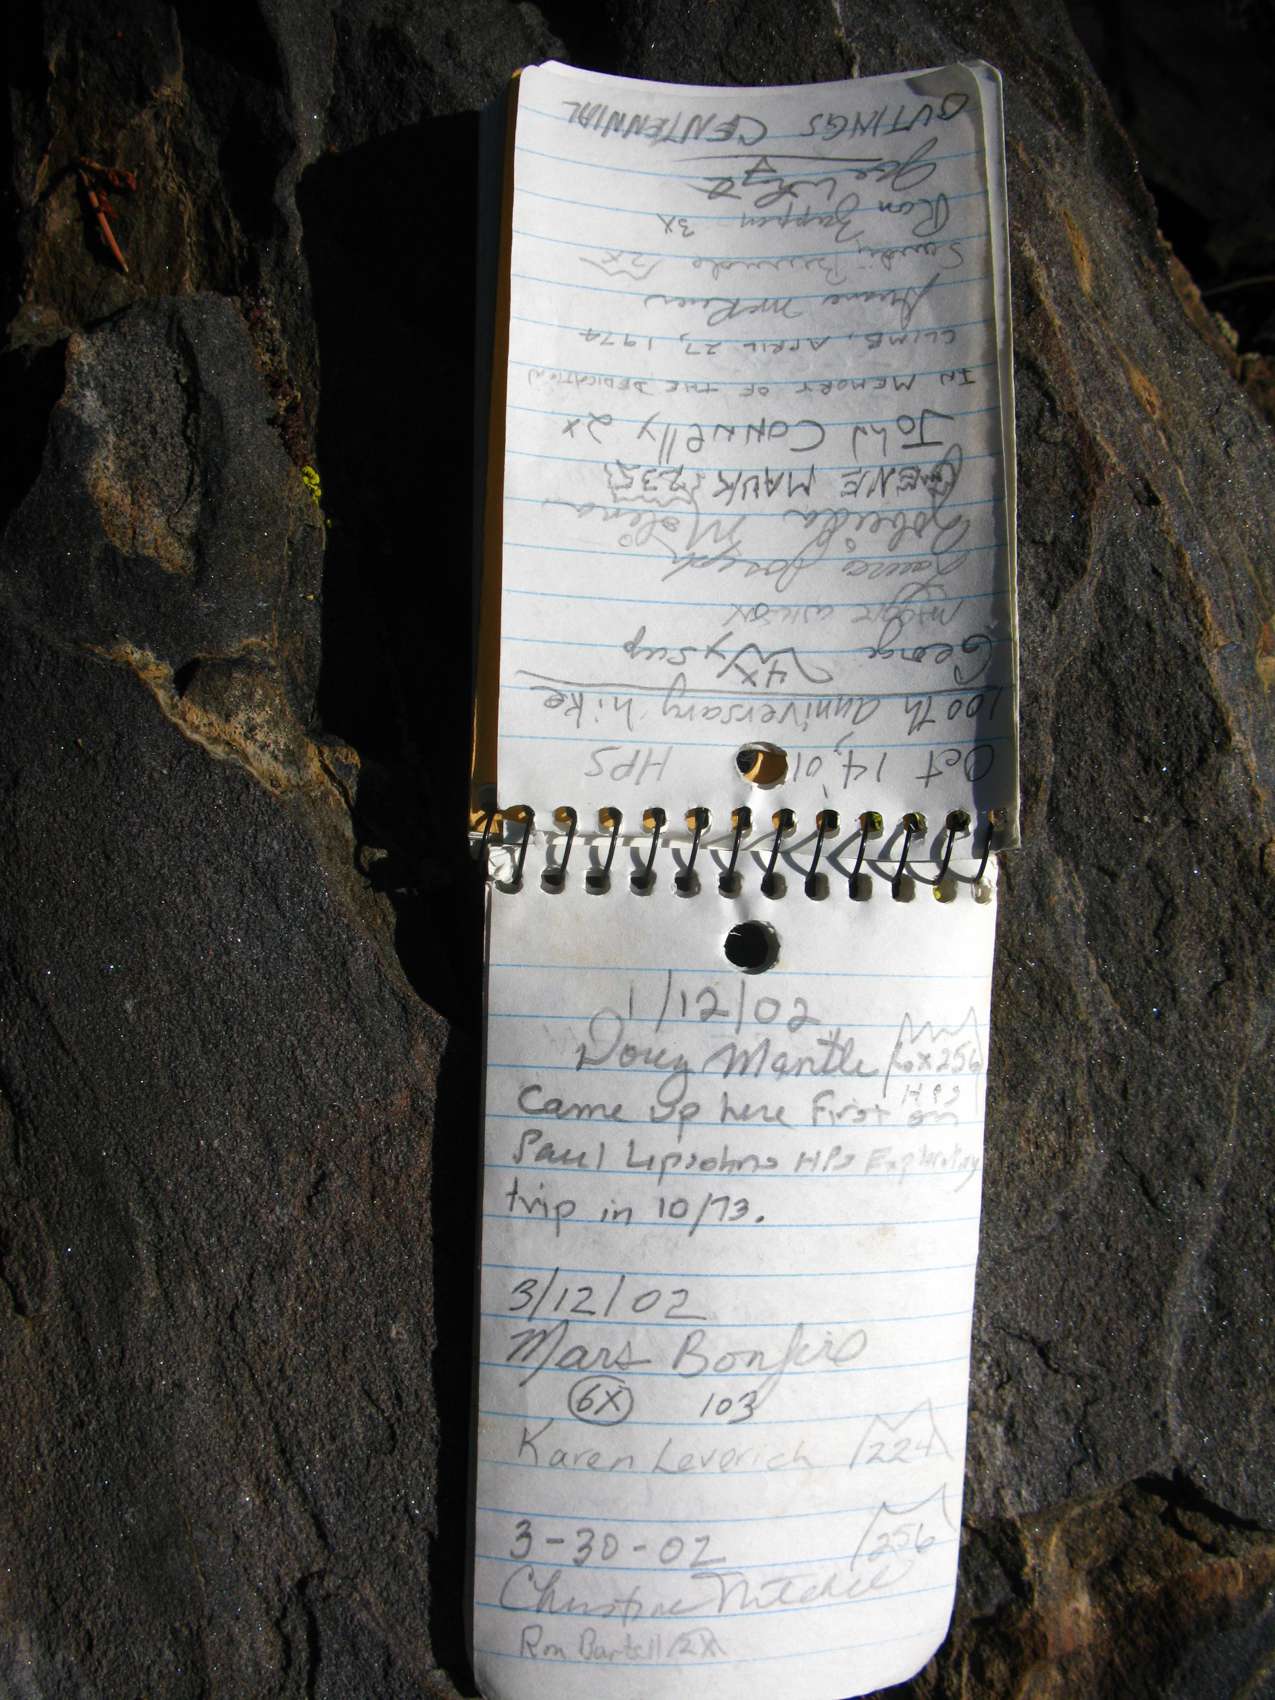 Oct 14, 01 HPS
100th anniversary hike
George Wysup 4x
Laura Joseph
Roberta Molina
GENE MAUK 235
JOHN CONNELLY 2x
IN MEMORY OF THE DEDICATION
CLIMB, APRIL 27, 1974
2x
Ron Zappen 3x
Joe
OUTINGS CENTENNIAL
1/12/02
Doug Mantle 6x256
HPS
Came up here First on
Paul Lipsohns HPS Exploratory
trip in 10/73.
3/12/02
Mars Bonfire
6X 103
Karen Leverich 224
3-30-02 256
Christine Mitchell
Ron Bartell 2X